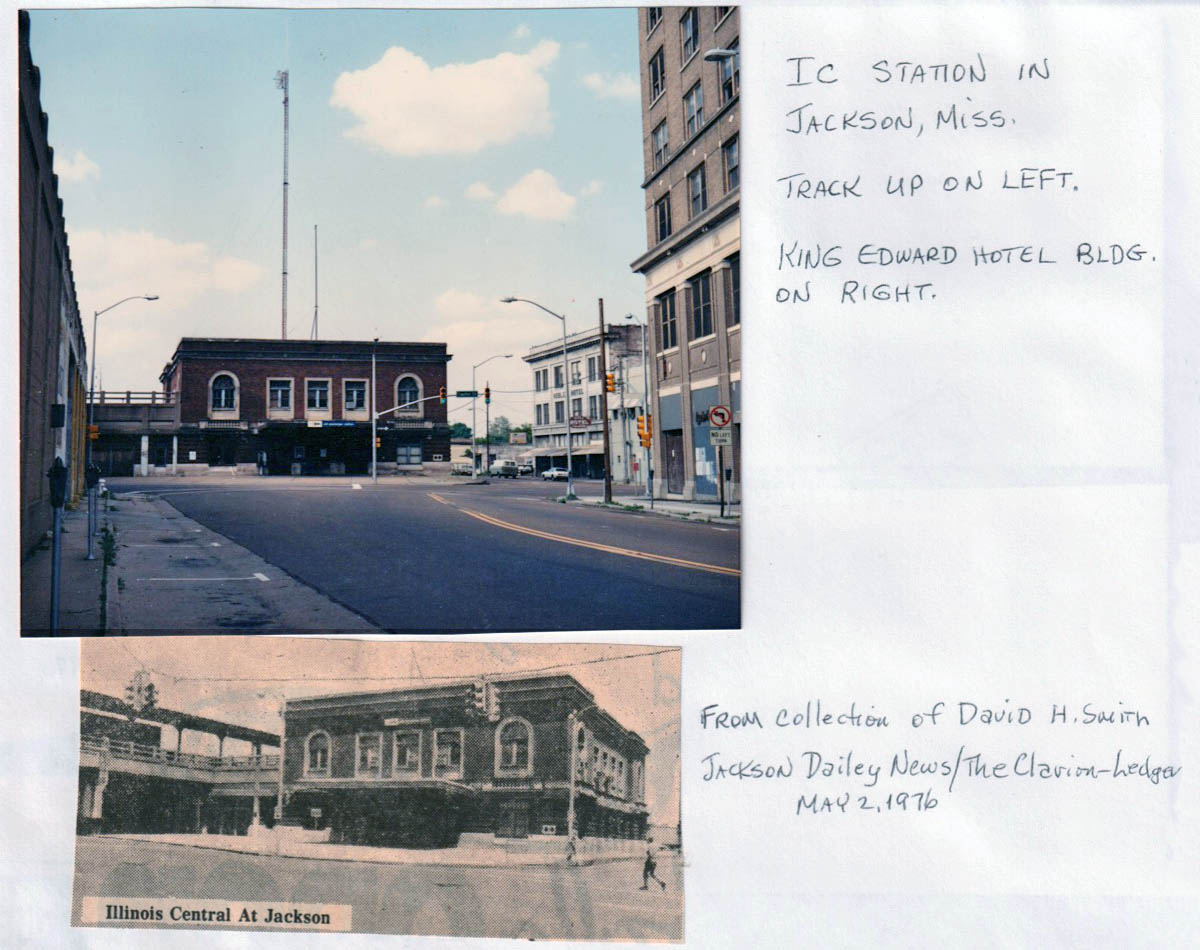 IC STATION IN
JACKSON, MISS.
TRACK UP ON LEFT.
KING EDWARD HOTEL BLDG.
ON RIGHT.
HOTEL
NO LEFT
TURN
FROM Collection of David H. Smith
JACKSON Dailey News/The Clarion-Ledger
MAY 2, 1976
Illinois Central At Jackson